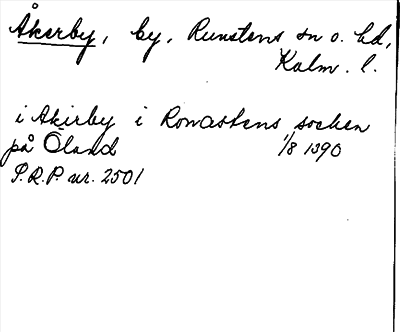 Åkerby, by, Runstens sn o. hd,
Kalm. l.
i Akirby i Ronastens socken
på Öland 1/8 1390
P.R.P. nr. 2501